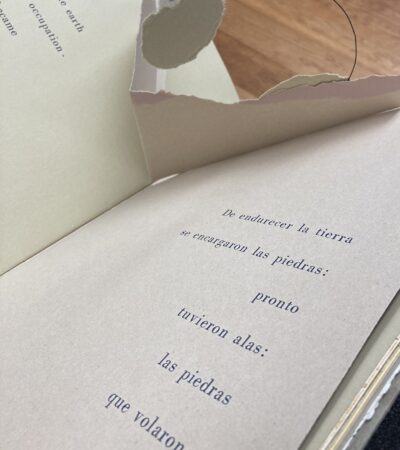 e earth
came
occupation.
De endurecer la tierra
se encargaron las piedras:
pronto
tuvieron alas:
las piedras
que volaron